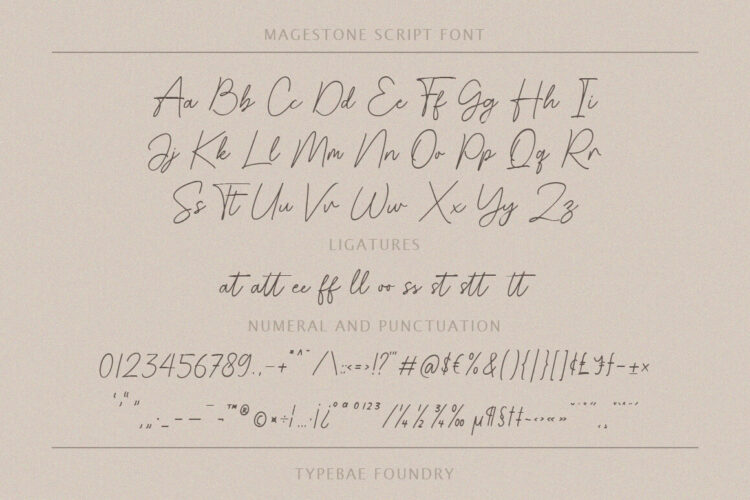 MAGESTONE SCRIPT FONT
Aa Bb Cc Dd Ee Ff Gg Hh Ii
Jj Kk Ll Mm Nn Oo Pp Qq Rr
Ss Tt Uu Vv Ww Xx Yy Zz
LIGATURES
at att ee ff ll oo ss st stt tt
NUMERAL AND PUNCTUATION
0123456789.,-+"^~/\:;<=>!?'"#@$€%&(){|}[]¢£¥ƒ-±×
‚'‘“„,„·_–—¯¬™®©¤÷¡…·¡¿ºª0123/¼½¾‰µ¶§†‡-‹›«»
TYPEBAE FOUNDRY